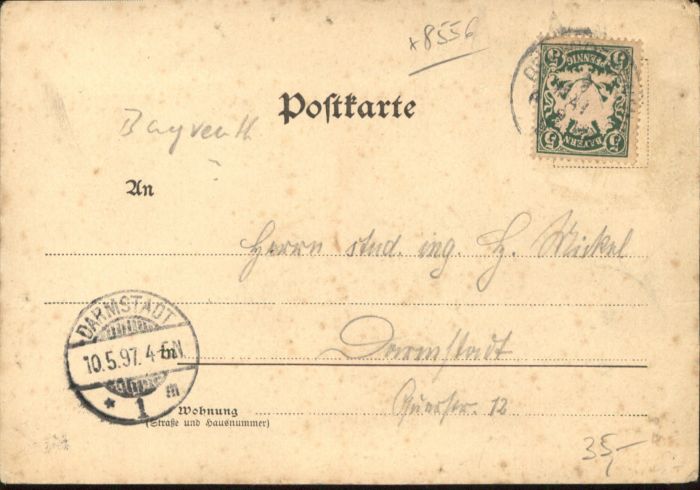 x8556
5 PFENNIG 5
5 BAYERN 5
Postkarte
Bayreuth
An
Herrn stud. ing. H. Mickel
DARMSTADT
10.5.97. 4-5N
* 1 m
in
Darmstadt
Wohnung
(Straße und Hausnummer)
Querstr. 12
35,-